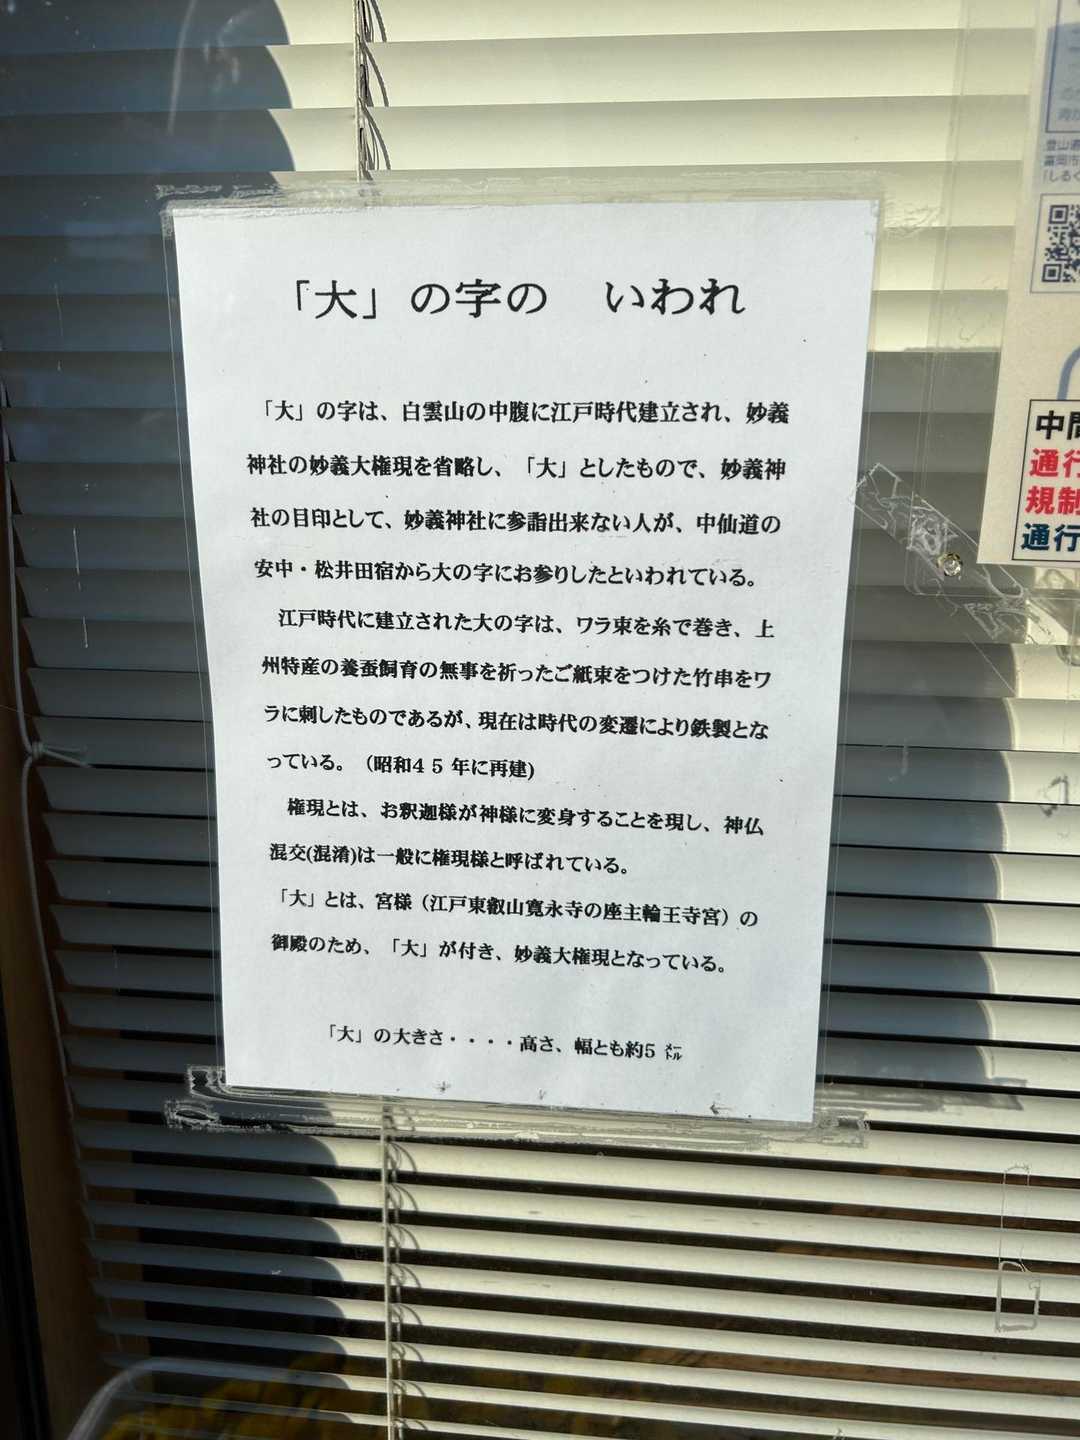 「大」の字の　いわれ
「大」の字は、白雲山の中腹に江戸時代建立され、妙義
神社の妙義大権現を省略し、「大」としたもので、妙義神
社の目印として、妙義神社に参詣出来ない人が、中仙道の
安中・松井田宿から大の字にお参りしたといわれている。
江戸時代に建立された大の字は、ワラ束を糸で巻き、上
州特産の養蚕飼育の無事を祈ったご紙束をつけた竹串をワ
ラに刺したものであるが、現在は時代の変遷により鉄製とな
っている。（昭和４５年に再建)
権現とは、お釈迦様が神様に変身することを現し、神仏
混交(混淆)は一般に権現様と呼ばれている。
「大」とは、宮様（江戸東叡山寛永寺の座主輪王寺宮）の
御殿のため、「大」が付き、妙義大権現となっている。
「大」の大きさ・・・・高さ、幅とも約5㍍
登山道
富岡市
「しるく
中間
通行
規制
通行